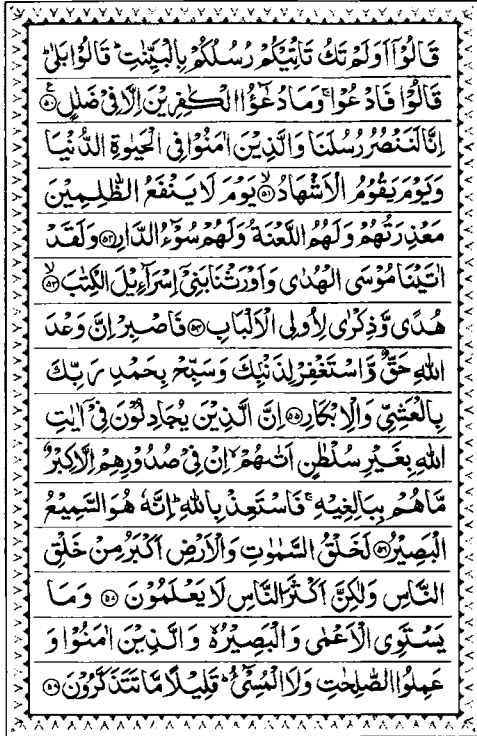 قَالُوْۤا اَوَلَمْ تَكُ تَاْتِيْكُمْ رُسُلُكُمْ بِالْبَيِّنٰتِ ؕ قَالُوْا بَلٰى ؕ
قَالُوْا فَادْعُوْا ۚ وَمَا دُعٰٓؤُا الْكٰفِرِيْنَ اِلَّا فِيْ ضَلٰلٍ ﴿۵۰﴾
اِنَّا لَنَنْصُرُ رُسُلَنَا وَالَّذِيْنَ اٰمَنُوْا فِي الْحَيٰوةِ الدُّنْيَا
وَيَوْمَ يَقُوْمُ الْاَشْهَادُ ﴿۵۱﴾ يَوْمَ لَا يَنْفَعُ الظّٰلِمِيْنَ
مَعْذِرَتُهُمْ وَلَهُمُ اللَّعْنَةُ وَلَهُمْ سُوْٓءُ الدَّارِ ﴿۵۲﴾ وَلَقَدْ
اٰتَيْنَا مُوْسَى الْهُدٰى وَاَوْرَثْنَا بَنِيْۤ اِسْرَآءِيْلَ الْكِتٰبَ ﴿۵۳﴾
هُدًى وَّذِكْرٰى لِاُولِى الْاَلْبَابِ ﴿۵۴﴾ فَاصْبِرْ اِنَّ وَعْدَ
اللّٰهِ حَقٌّ وَّاسْتَغْفِرْ لِذَنْۢبِكَ وَسَبِّحْ بِحَمْدِ رَبِّكَ
بِالْعَشِيِّ وَالْاِبْكَارِ ﴿۵۵﴾ اِنَّ الَّذِيْنَ يُجَادِلُوْنَ فِيْۤ اٰيٰتِ
اللّٰهِ بِغَيْرِ سُلْطٰنٍ اَتٰىهُمْ ۙ اِنْ فِيْ صُدُوْرِهِمْ اِلَّا كِبْرٌ
مَّا هُمْ بِبَالِغِيْهِ ۚ فَاسْتَعِذْ بِاللّٰهِ ؕ اِنَّهٗ هُوَ السَّمِيْعُ
الْبَصِيْرُ ﴿۵۶﴾ لَخَلْقُ السَّمٰوٰتِ وَالْاَرْضِ اَكْبَرُ مِنْ خَلْقِ
النَّاسِ وَلٰكِنَّ اَكْثَرَ النَّاسِ لَا يَعْلَمُوْنَ ﴿۵۷﴾ وَمَا
يَسْتَوِى الْاَعْمٰى وَالْبَصِيْرُ ۙ وَالَّذِيْنَ اٰمَنُوْا وَ
عَمِلُوا الصّٰلِحٰتِ وَلَا الْمُسِيْٓءُ ؕ قَلِيْلًا مَّا تَتَذَكَّرُوْنَ ﴿۵۸﴾